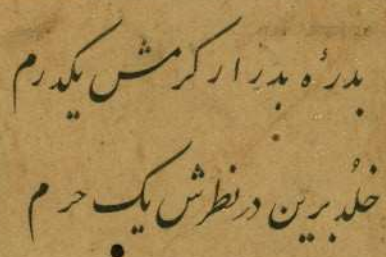 بدرۀ بدر از کرمش یکدرم
خلد برین در نظرش یک حرم